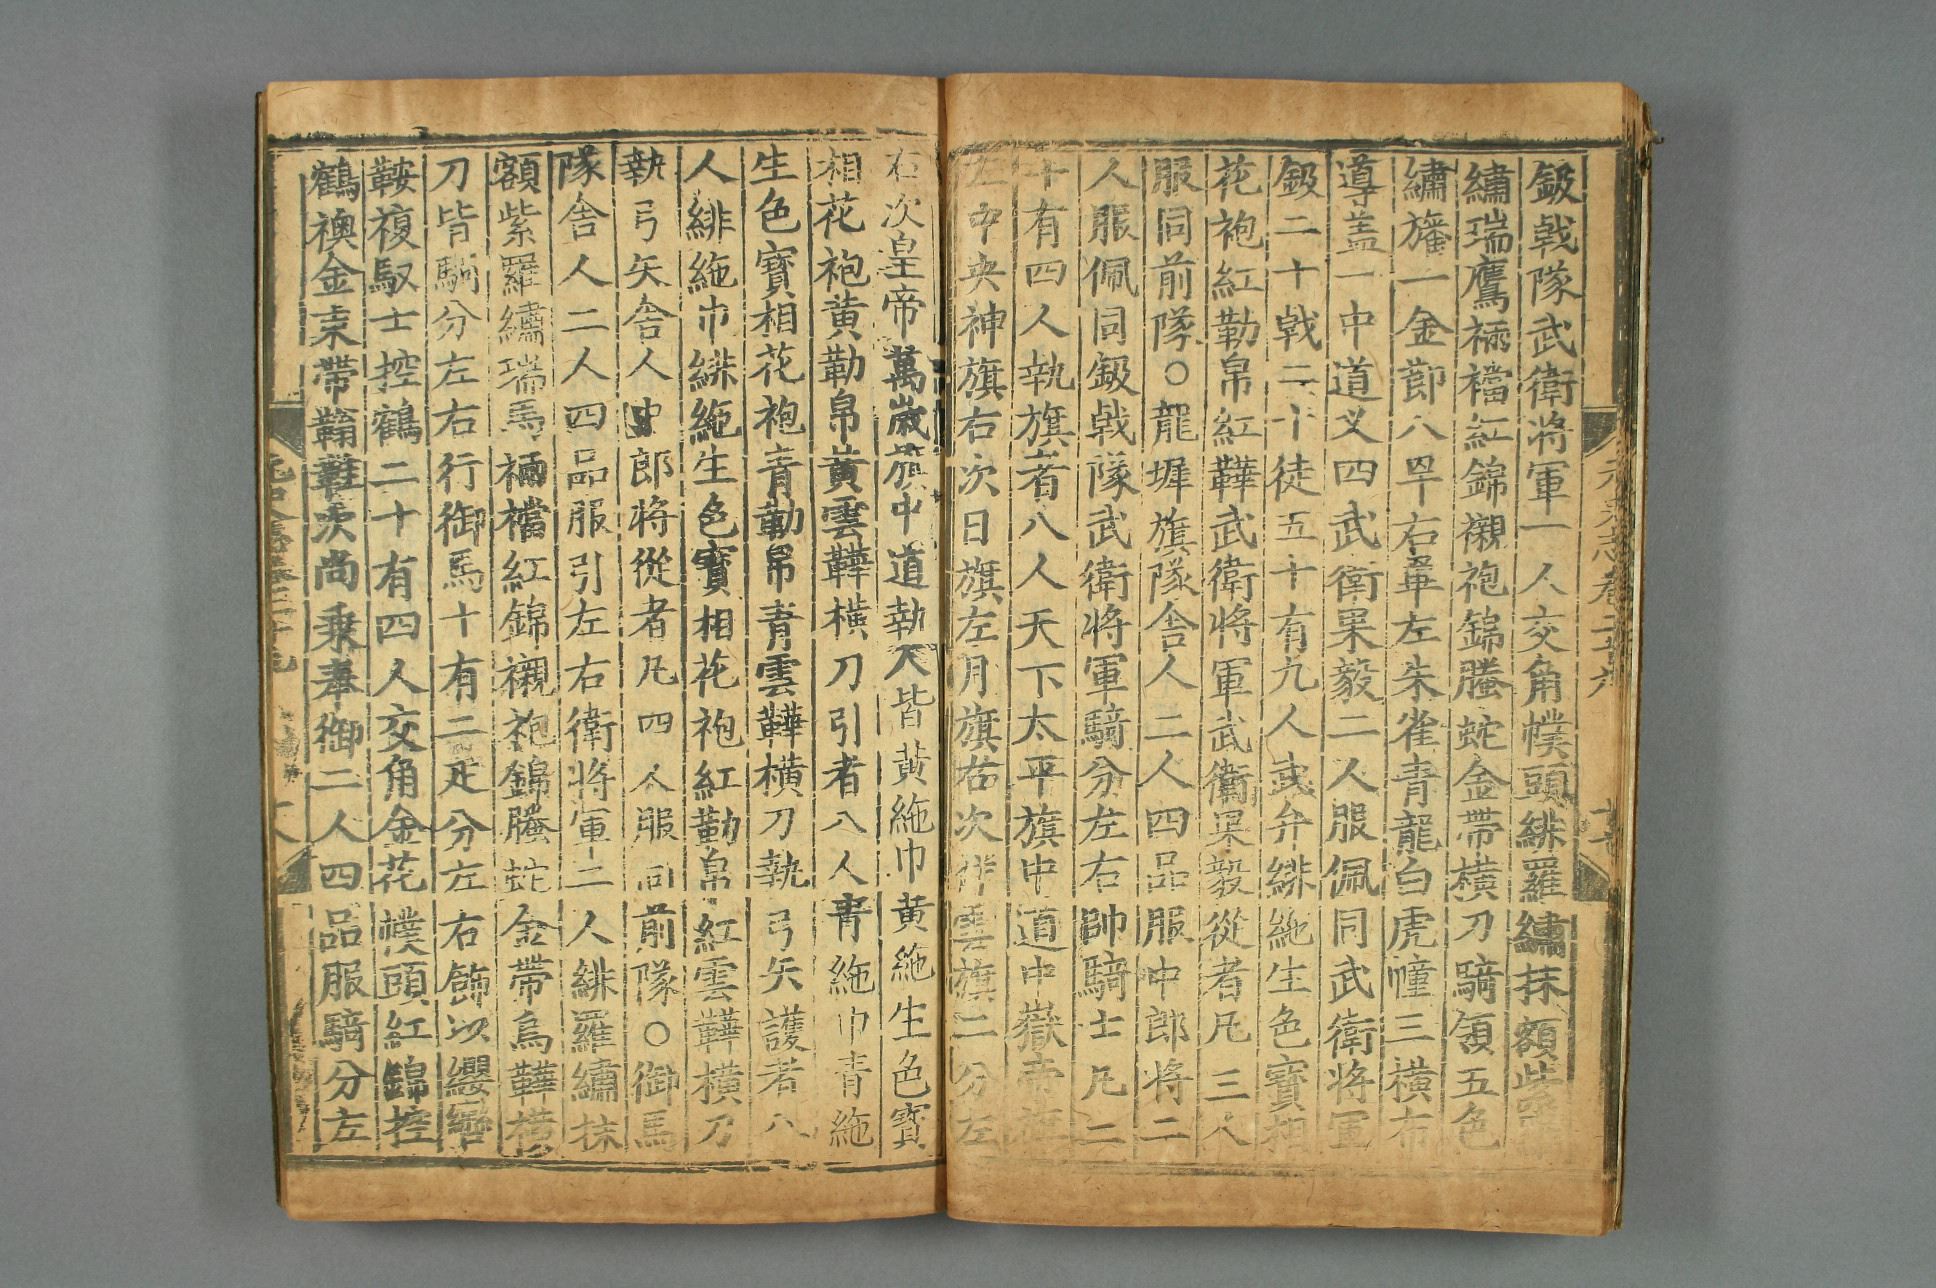 鈒戟隊武衛將軍一人交角幞頭緋羅繡抹額紫羅
繡瑞鷹裲襠紅錦襯袍錦螣蛇金帶橫刀騎領五色
繡旛一金節八罕右罼左朱雀青龍白虎幢三橫布
導蓋一中道叉四武衛果毅二人服佩同武衛將軍
鈒二十戟二十徒五十有九人武弁緋絁生色寶相
花袍紅勒帛紅鞾武衛將軍武衛果毅從者凡三人
服同前隊○龍墀旗隊舍人二人四品服中郎將二
人服佩同鈒戟隊武衛將軍騎分左右帥騎士凡二
十有四人執旗者八人天下太平旗中道中嶽帝旗
左中央神旗右次日旗左月旗右次祥雲旗二分左
右次皇帝萬歲旗中道執人皆黃絁巾黃絁生色寶
相花袍黃勒帛黃雲鞾橫刀引者八人青絁巾青絁
生色寶相花袍青勒帛青雲鞾橫刀執弓矢護者八
人緋絁巾緋絁生色寶相花袍紅勒帛紅雲鞾橫刀
執弓矢舍人中郎將從者凡四人服同前隊○御馬
隊舍人二人四品服引左右衛將軍二人緋羅繡抹
額紫羅繡瑞馬裲襠紅錦襯袍錦螣蛇金帶烏鞾橫
刀皆騎分左右行御馬十有二疋分左右飾以纓轡
鞍複馭士控鶴二十有四人交角金花幞頭紅錦控
鶴襖金束帶韐鞋次尚乘奉御二人四品服騎分左